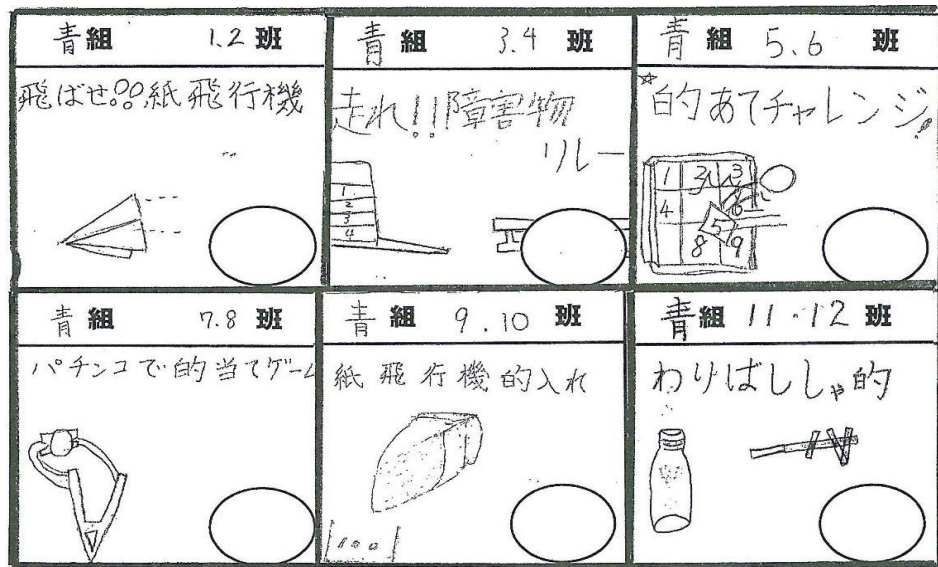 青組 1.2 班
飛ばせ!!紙飛行機
青組 3.4 班
走れ!!障害物
リレー
1
2
3
4
青組 5.6 班
☆的あてチャレンジ!
1 2 3
4 6
5
8 9
青組 7.8 班
パチンコで的当てゲーム
青組 9.10 班
紙飛行機的入れ
100
青組 11.12 班
わりばししゃ的